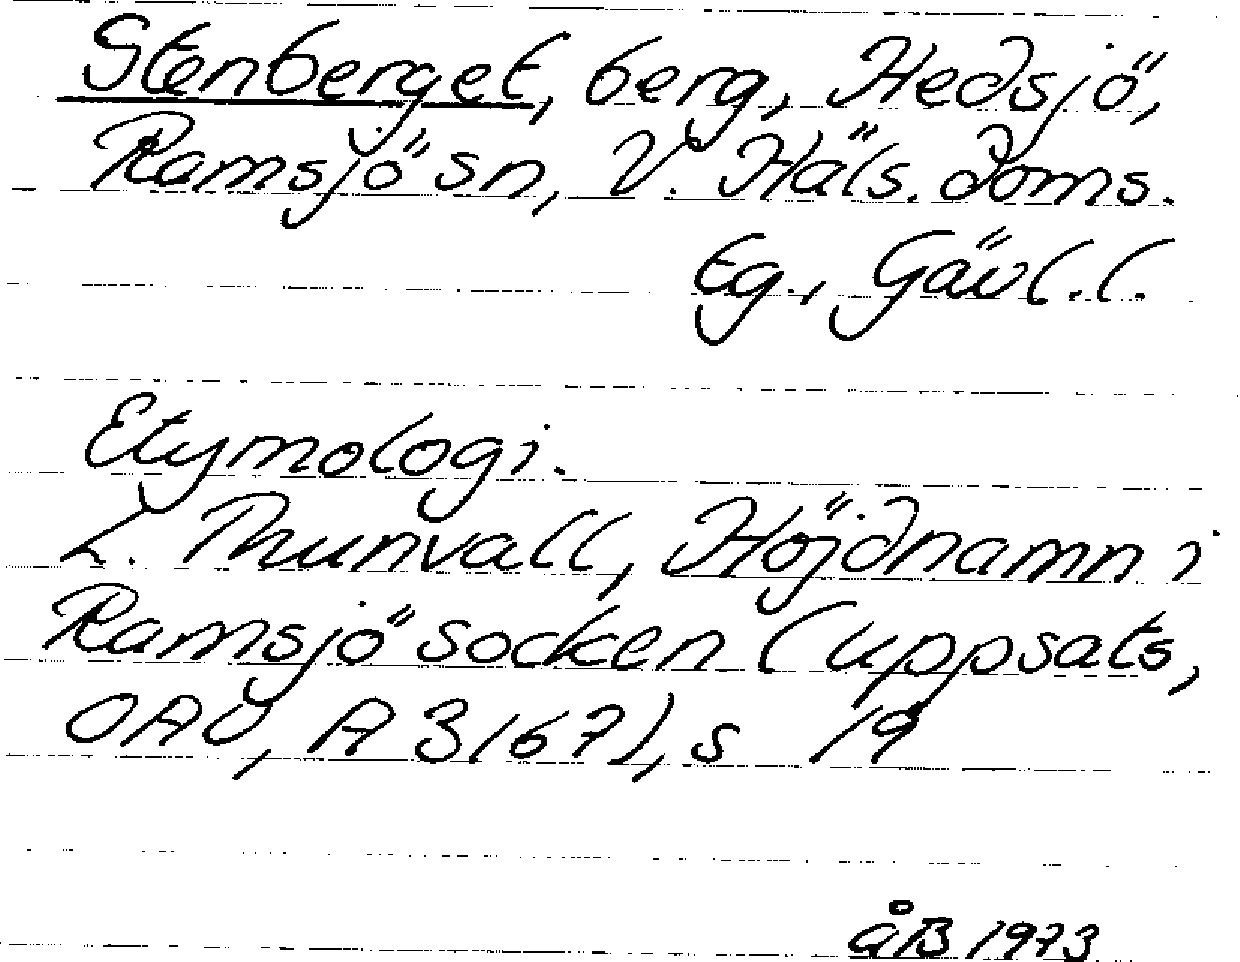 Stenberget, berg, Hedsjö,
Ramsjö sn, V. Häls. doms.
Eg., Gävl.l.
Etymologi.
L. Thunvall, Höjdnamn i
Ramsjö socken (uppsats,
OAU, A 3167), s 19
åB 1973